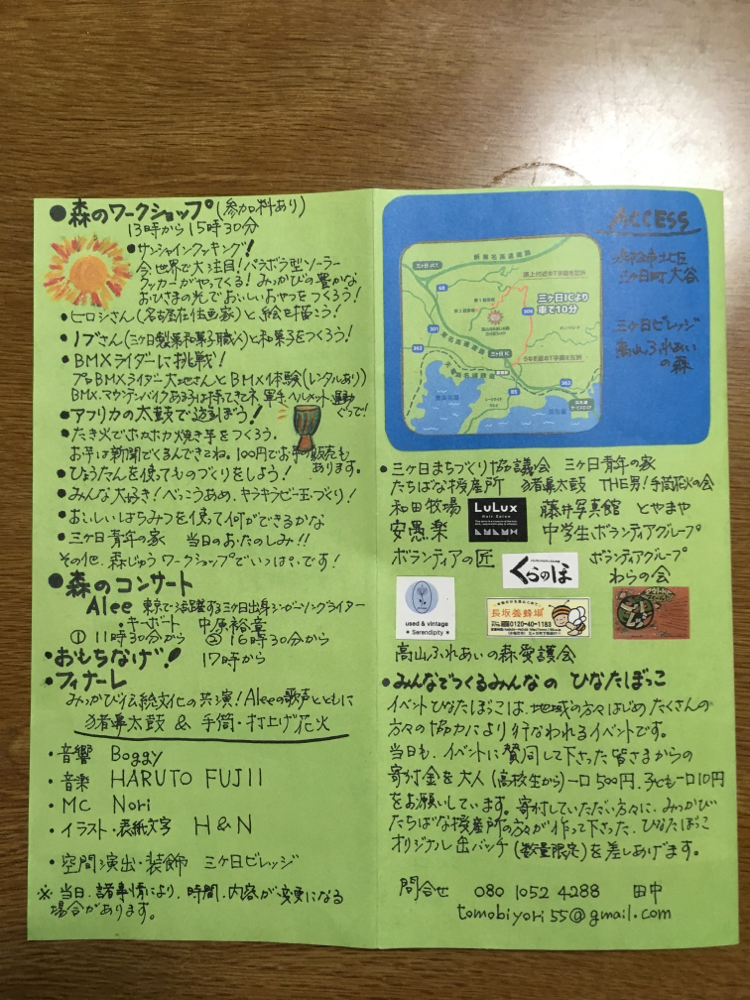 ●森のワークショップ(参加料あり)
13時から15時30分
●サンシャインクッキング!
今、世界で大注目!パラボラ型ソーラー
クッカーがやってくる!みっかびの豊かな
おひさまの光でおいしいおやつをつくろう!
●ヒロシさん(名古屋在住画家)と絵を描こう!
●ノブさん(三ケ日製菓和菓子職人)と和菓子をつくろう!
●BMXライダーに挑戦!
プロBMXライダー大地さんとBMX体験(レンタルあり)
BMX.マウンテンバイクある子は持ってきてネ 軍手ヘルメット、運動ぐつで!
●アフリカの太鼓で遊ぼう!
●たき火でホカホカ焼き芋をつくろう。
お芋は新聞でくるんできてね。100円でお芋の販売もあります。
●ひょうたんを使ってものづくりをしよう!
●みんな大好き!べっこうあめ、キラキラビー玉づくり!
●おいしいはちみつを使って何ができるかな
●三ケ日青年の家 当日のおたのしみ!!
その他、森じゅうワークショップでいっぱいです!
●森のコンサート
Alee 東京で活躍する三ケ日出身シンガーソングライター
・キーボード 中原裕章
①11時30分から ②16時30分から
●おもちなげ! 17時から
●フィナーレ
みっかび伝統文化の共演!Aleeの歌声とともに
猪鼻太鼓 & 手筒・打上げ花火
・音響 Boggy
・音楽 HARUTO FUJII
・MC Nori
・イラスト・表紙文字 H&N
・空間演出・装飾 三ケ日ビレッジ
※当日、諸事情により、時間、内容が変更になる
場合があります。
ACCESS
浜松市北区
三ケ日町大谷
三ケ日ビレッジ
高山ふれあい
の森
新東名高速道路
三ケ日ICより
車で10分
東名高速道路
三ケ日IC
68
301
308
362
85
362
●三ケ日まちづくり協議会 三ケ日青年の家
たちばな授産所 猪鼻太鼓 THE男!手筒花火の会
和田牧場 LuLux Hair Salon 藤井写真館 とやまや
安愚楽 中学生ボランティアグループ
ボランティアの匠 くらのほ ボランティアグループ
わらの会
used & vintage
Serendipity
長坂養蜂場
0120-40-1183
高山ふれあいの森愛護会
●みんなでつくるみんなの ひなたぼっこ
イベントひなたぼっこは、地域の方々はじめたくさんの
方々の協力により行なわれるイベントです。
当日も、イベントに賛同して下さった皆さまからの
寄付金を大人(高校生から)一口500円、子ども一口10円
をお願いしています。寄付していただいた方々に、みっかび
たちばな授産所の方々が作って下さった、ひなたぼっこ
オリジナル缶バッチ(数量限定)を差しあげます。
問合せ 080 1052 4288 田中
tomobiyori55@gmail.com